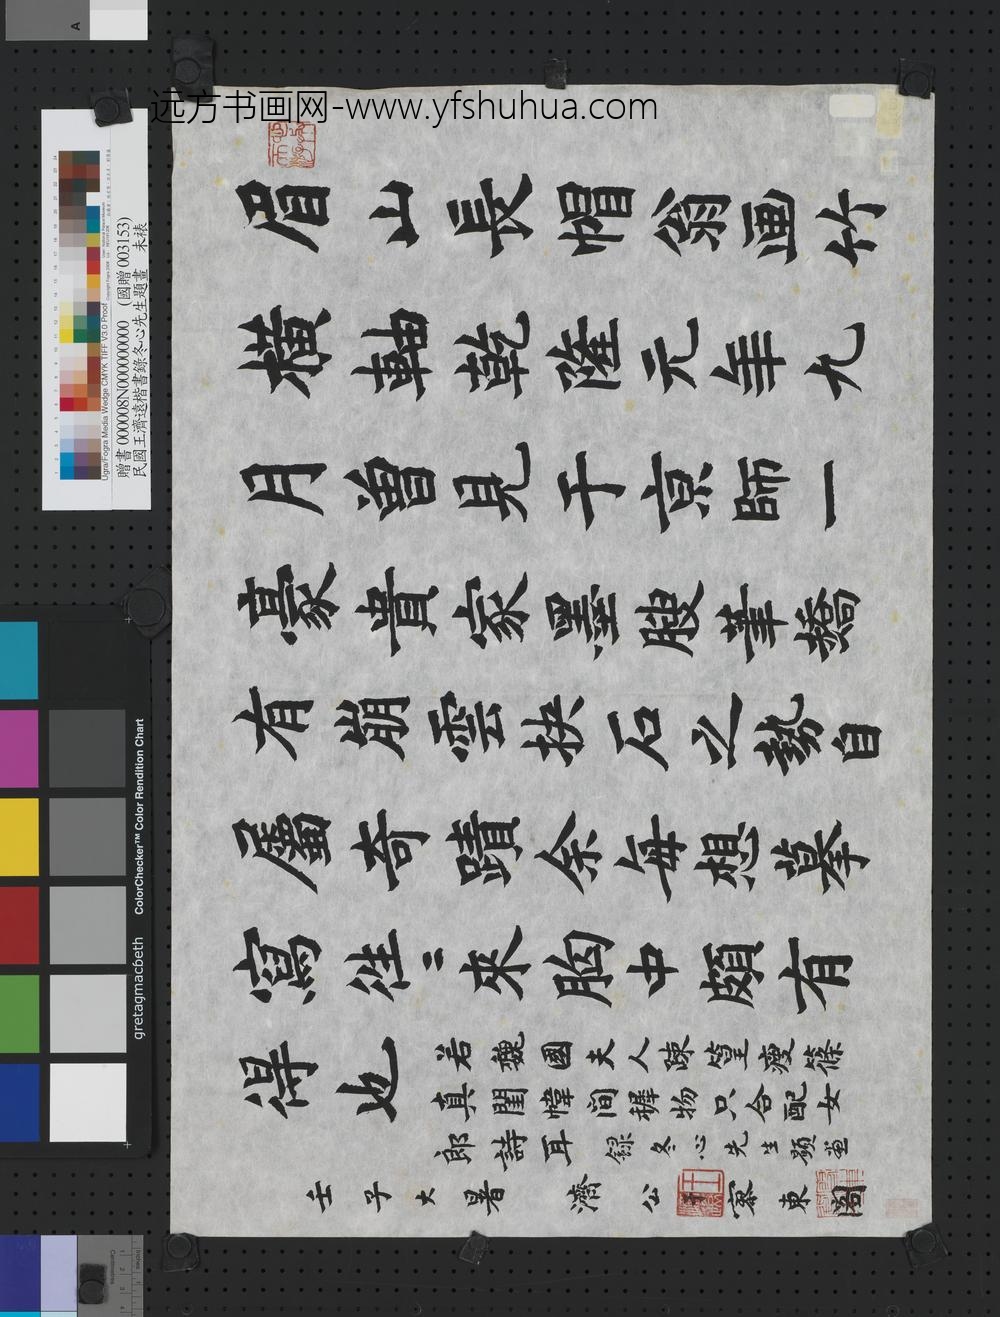 远方书画网-www.yfshuhua.com
眉山長帽翁画竹
橫軸乾隆元年九
月曾見于京師一
豪貴家墨腴筆撟
有崩雲抉石之勢自
屬奇蹟余每想摹
寫往〻來胸中頗有
得也
若魏國夫人疎篁瘦篠
真閨幃間穉物只合配女
郎詩耳 錄冬心先生題畫
壬子大暑 濟公 客東
贈書 000008N000000000 (國贈 003153)
民國王濟遠楷書錄冬心先生題畫 未裱
Ugra/Fogra Media Wedge CMYK TIFF V3.0 Proof
ColorChecker™ Color Rendition Chart
gretagmacbeth
A